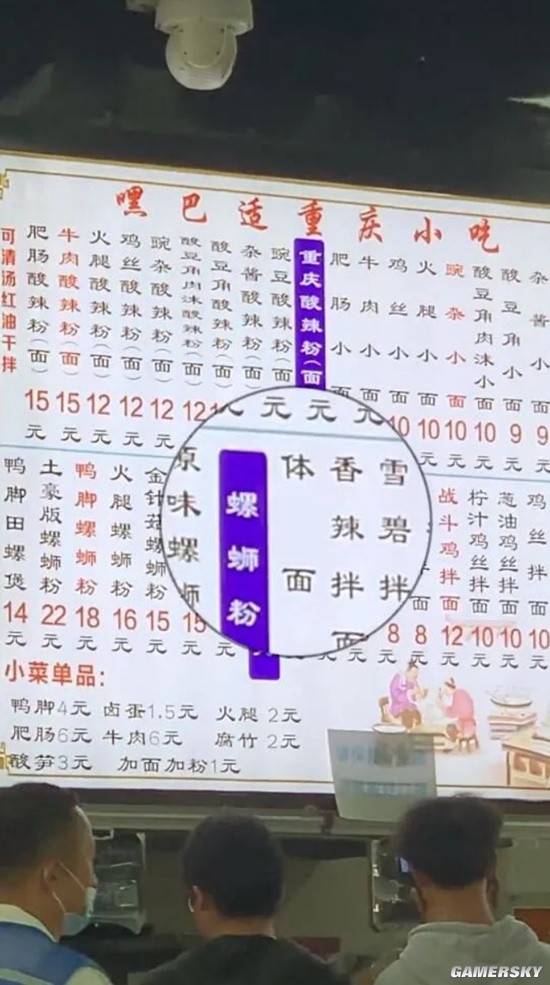 嘿巴适重庆小吃
可清汤红油干拌
肥肠酸辣粉(面) 15元
牛肉酸辣粉(面) 15元
火腿酸辣粉(面) 12元
鸡丝酸辣粉(面) 12元
豌杂酸辣粉(面) 12元
酸豆角肉沫酸辣粉(面)
酸豆角酸辣粉(面)
杂酱酸辣粉(面)
豌豆酸辣粉(面)
重庆酸辣粉(面
肥肠小面
牛肉小面
鸡丝小面 10元
火腿小面 10元
豌杂小面 10元
酸豆角肉沫小面 10元
酸豆角小面 9元
杂酱小面 9元
鸭脚田螺煲 14元
土豪版螺蛳粉 22元
鸭脚螺蛳粉 18元
火腿螺蛳粉 16元
金针菇螺蛳粉 15元
原味螺蛳
螺蛳粉
体面
香辣拌面
雪碧拌
8元
8元
战斗鸡拌面 12元
柠汁鸡丝拌面 10元
葱油鸡丝拌面 10元
鸡丝拌面 10元
小菜单品:
鸭脚4元 卤蛋1.5元 火腿 2元
肥肠6元 牛肉6元 腐竹 2元
酸笋3元 加面加粉1元
GAMERSKY